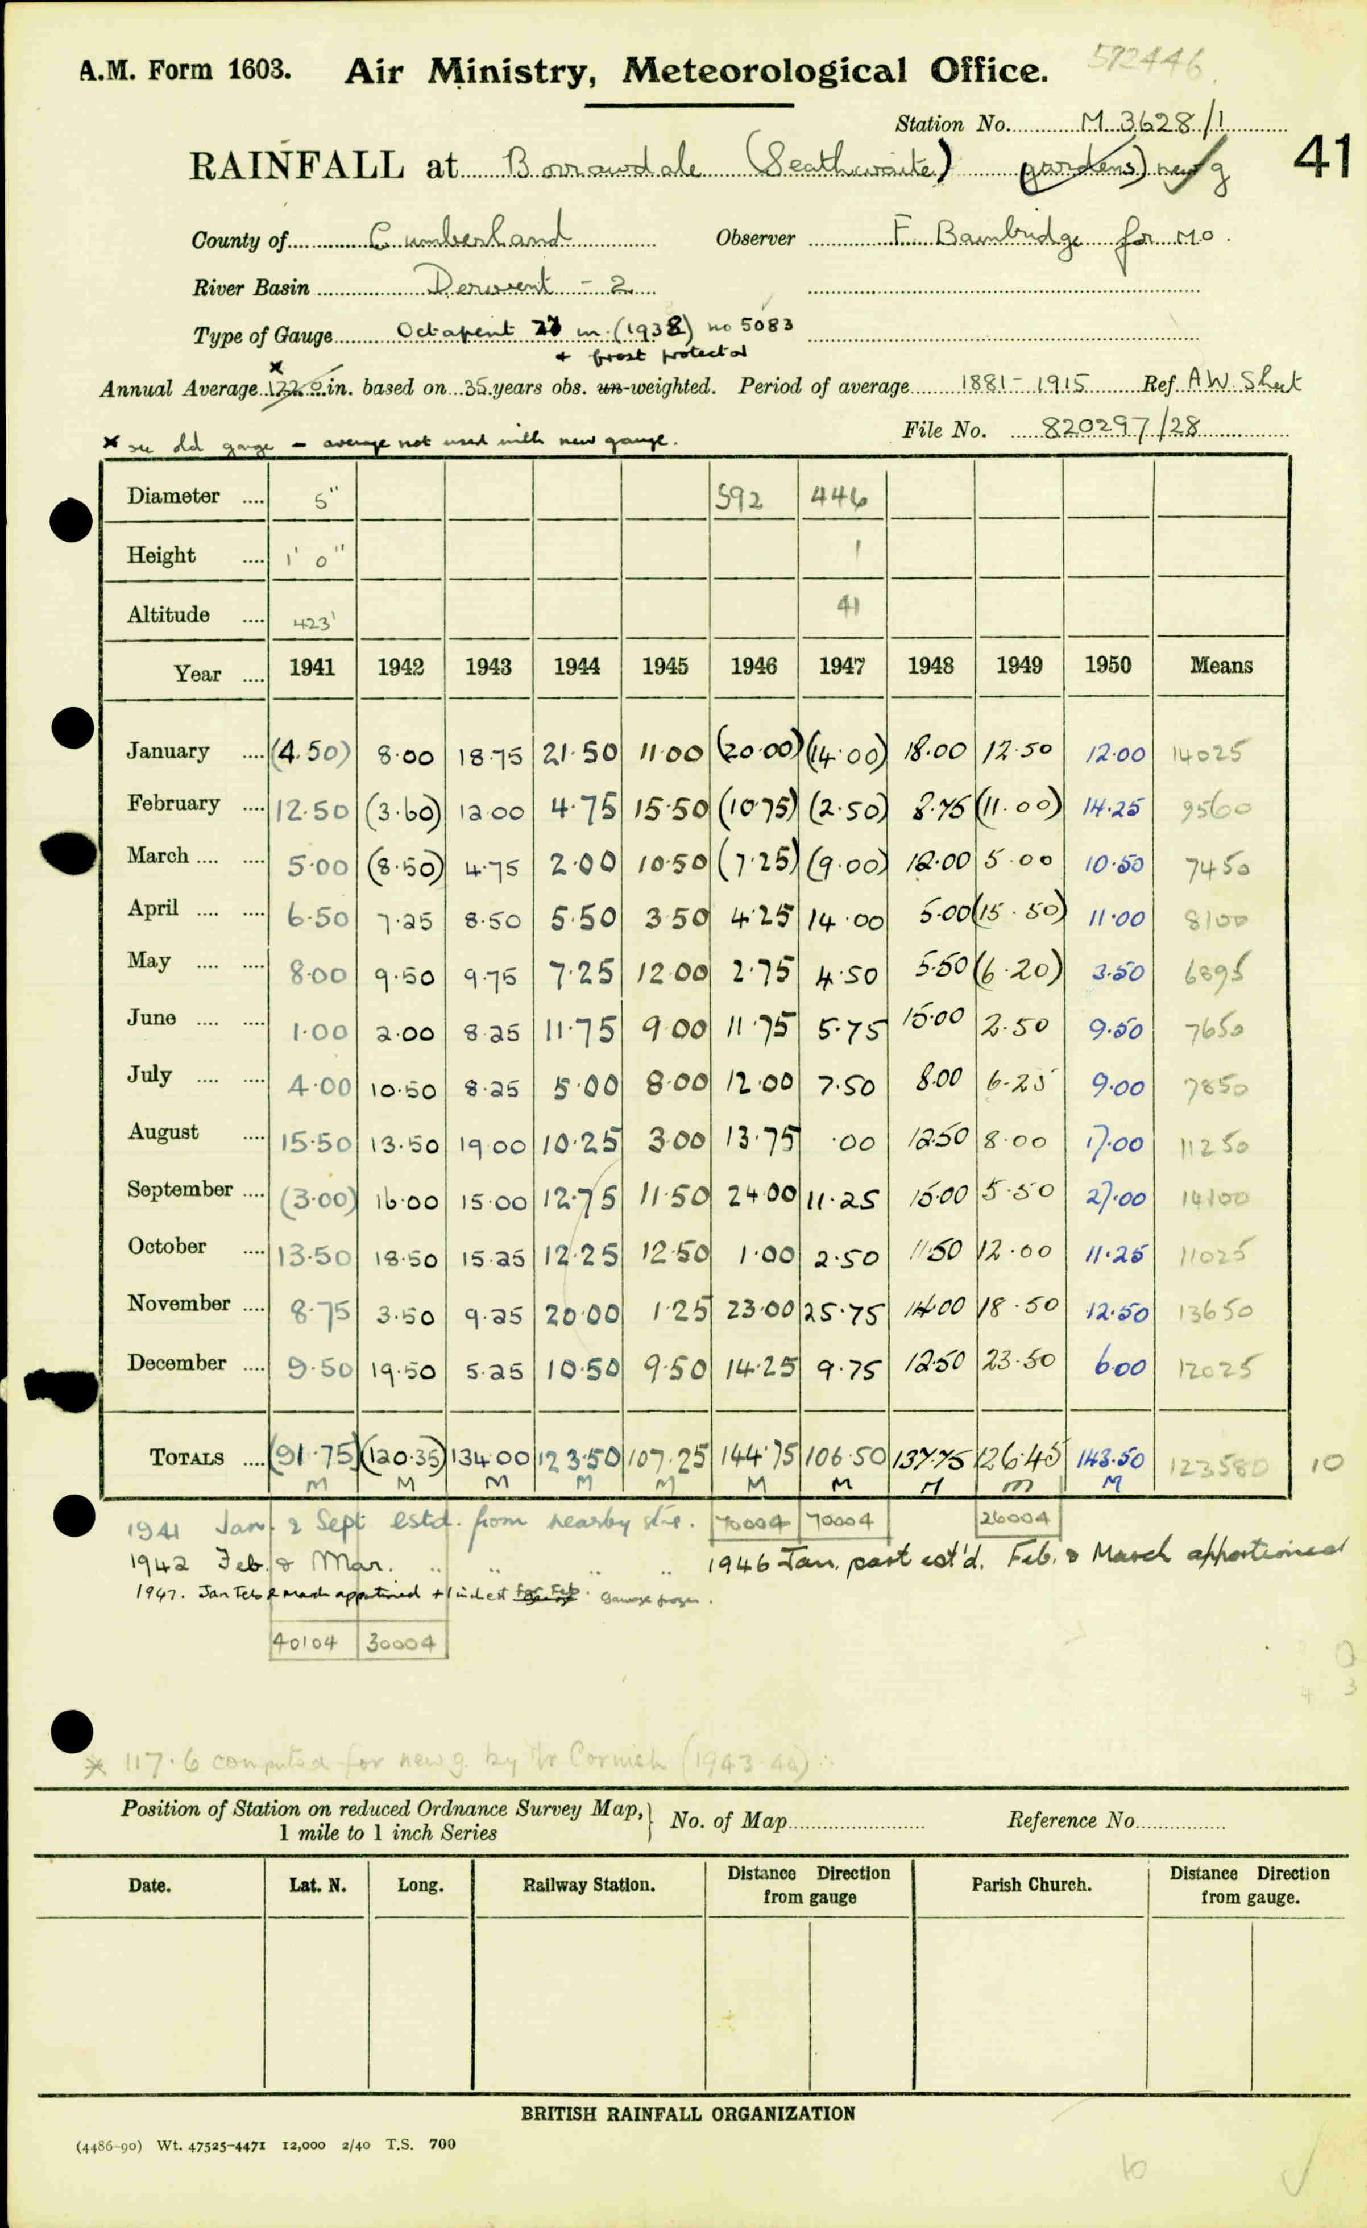 572446
A.M. Form 1603. Air Ministry, Meteorological Office.
Station No. M 3628/1
RAINFALL at Borrowdale (Seathwaite) (gardens) new g
41
County of Cumberland Observer F. Bambridge for MO.
River Basin Derwent - 2
Type of Gauge Octapent 27 in. (1938) no 5083
+ frost protector
Annual Average 122.0 in. based on 35 years obs. un-weighted. Period of average 1881-1915 Ref. A W. Sheet
File No. 820297/28
* see old gauge - average not used with new gauge.
Diameter .... 5" 592 446
Height .... 1' 0" 1
Altitude .... 423' 41
Year .... 1941 1942 1943 1944 1945 1946 1947 1948 1949 1950 Means
January .... (4.50) 8.00 18.75 21.50 11.00 (20.00) (14.00) 18.00 12.50 12.00 14025
February .... 12.50 (3.60) 12.00 4.75 15.50 (10.75) (2.50) 8.75 (11.00) 14.25 9560
March .... .... 5.00 (8.50) 4.75 2.00 10.50 (7.25) (9.00) 12.00 5.00 10.50 7450
April .... .... 6.50 7.25 8.50 5.50 3.50 4.25 14.00 5.00 (15.50) 11.00 8100
May .... .... 8.00 9.50 9.75 7.25 12.00 2.75 4.50 5.50 (6.20) 3.50 6895
June .... .... 1.00 2.00 8.25 11.75 9.00 11.75 5.75 15.00 2.50 9.50 7650
July .... .... 4.00 10.50 8.25 5.00 8.00 12.00 7.50 8.00 6.25 9.00 7850
August .... 15.50 13.50 19.00 10.25 3.00 13.75 .00 12.50 8.00 17.00 11250
September .... (3.00) 16.00 15.00 12.75 11.50 24.00 11.25 15.00 5.50 27.00 14100
October .... 13.50 18.50 15.25 12.25 12.50 1.00 2.50 11.50 12.00 11.25 11025
November .... 8.75 3.50 9.25 20.00 1.25 23.00 25.75 14.00 18.50 12.50 13650
December .... 9.50 19.50 5.25 10.50 9.50 14.25 9.75 12.50 23.50 6.00 12025
TOTALS .... (91.75) (120.35) 134.00 123.50 107.25 144.75 106.50 137.75 126.45 143.50 123580 10
M M M M M M M M M M
1941 Jan. & Sept estd. from nearby stn. 70004 70004 26004
1942 Feb. & Mar. " " " " 1946 Jan. part est'd. Feb. & March apportioned
1947. Jan Feb & March apportioned + 1 inch est for Feb. Gauge frozen.
40104 30004
* 117.6 computed for new g. by Mr Cornish (1943-4a)
Position of Station on reduced Ordnance Survey Map,} No. of Map Reference No.
1 mile to 1 inch Series
Date. Lat. N. Long. Railway Station. Distance Direction from gauge Parish Church. Distance Direction from gauge.
BRITISH RAINFALL ORGANIZATION
(4486-90) Wt. 47525-4471 12,000 2/40 T.S. 700
10